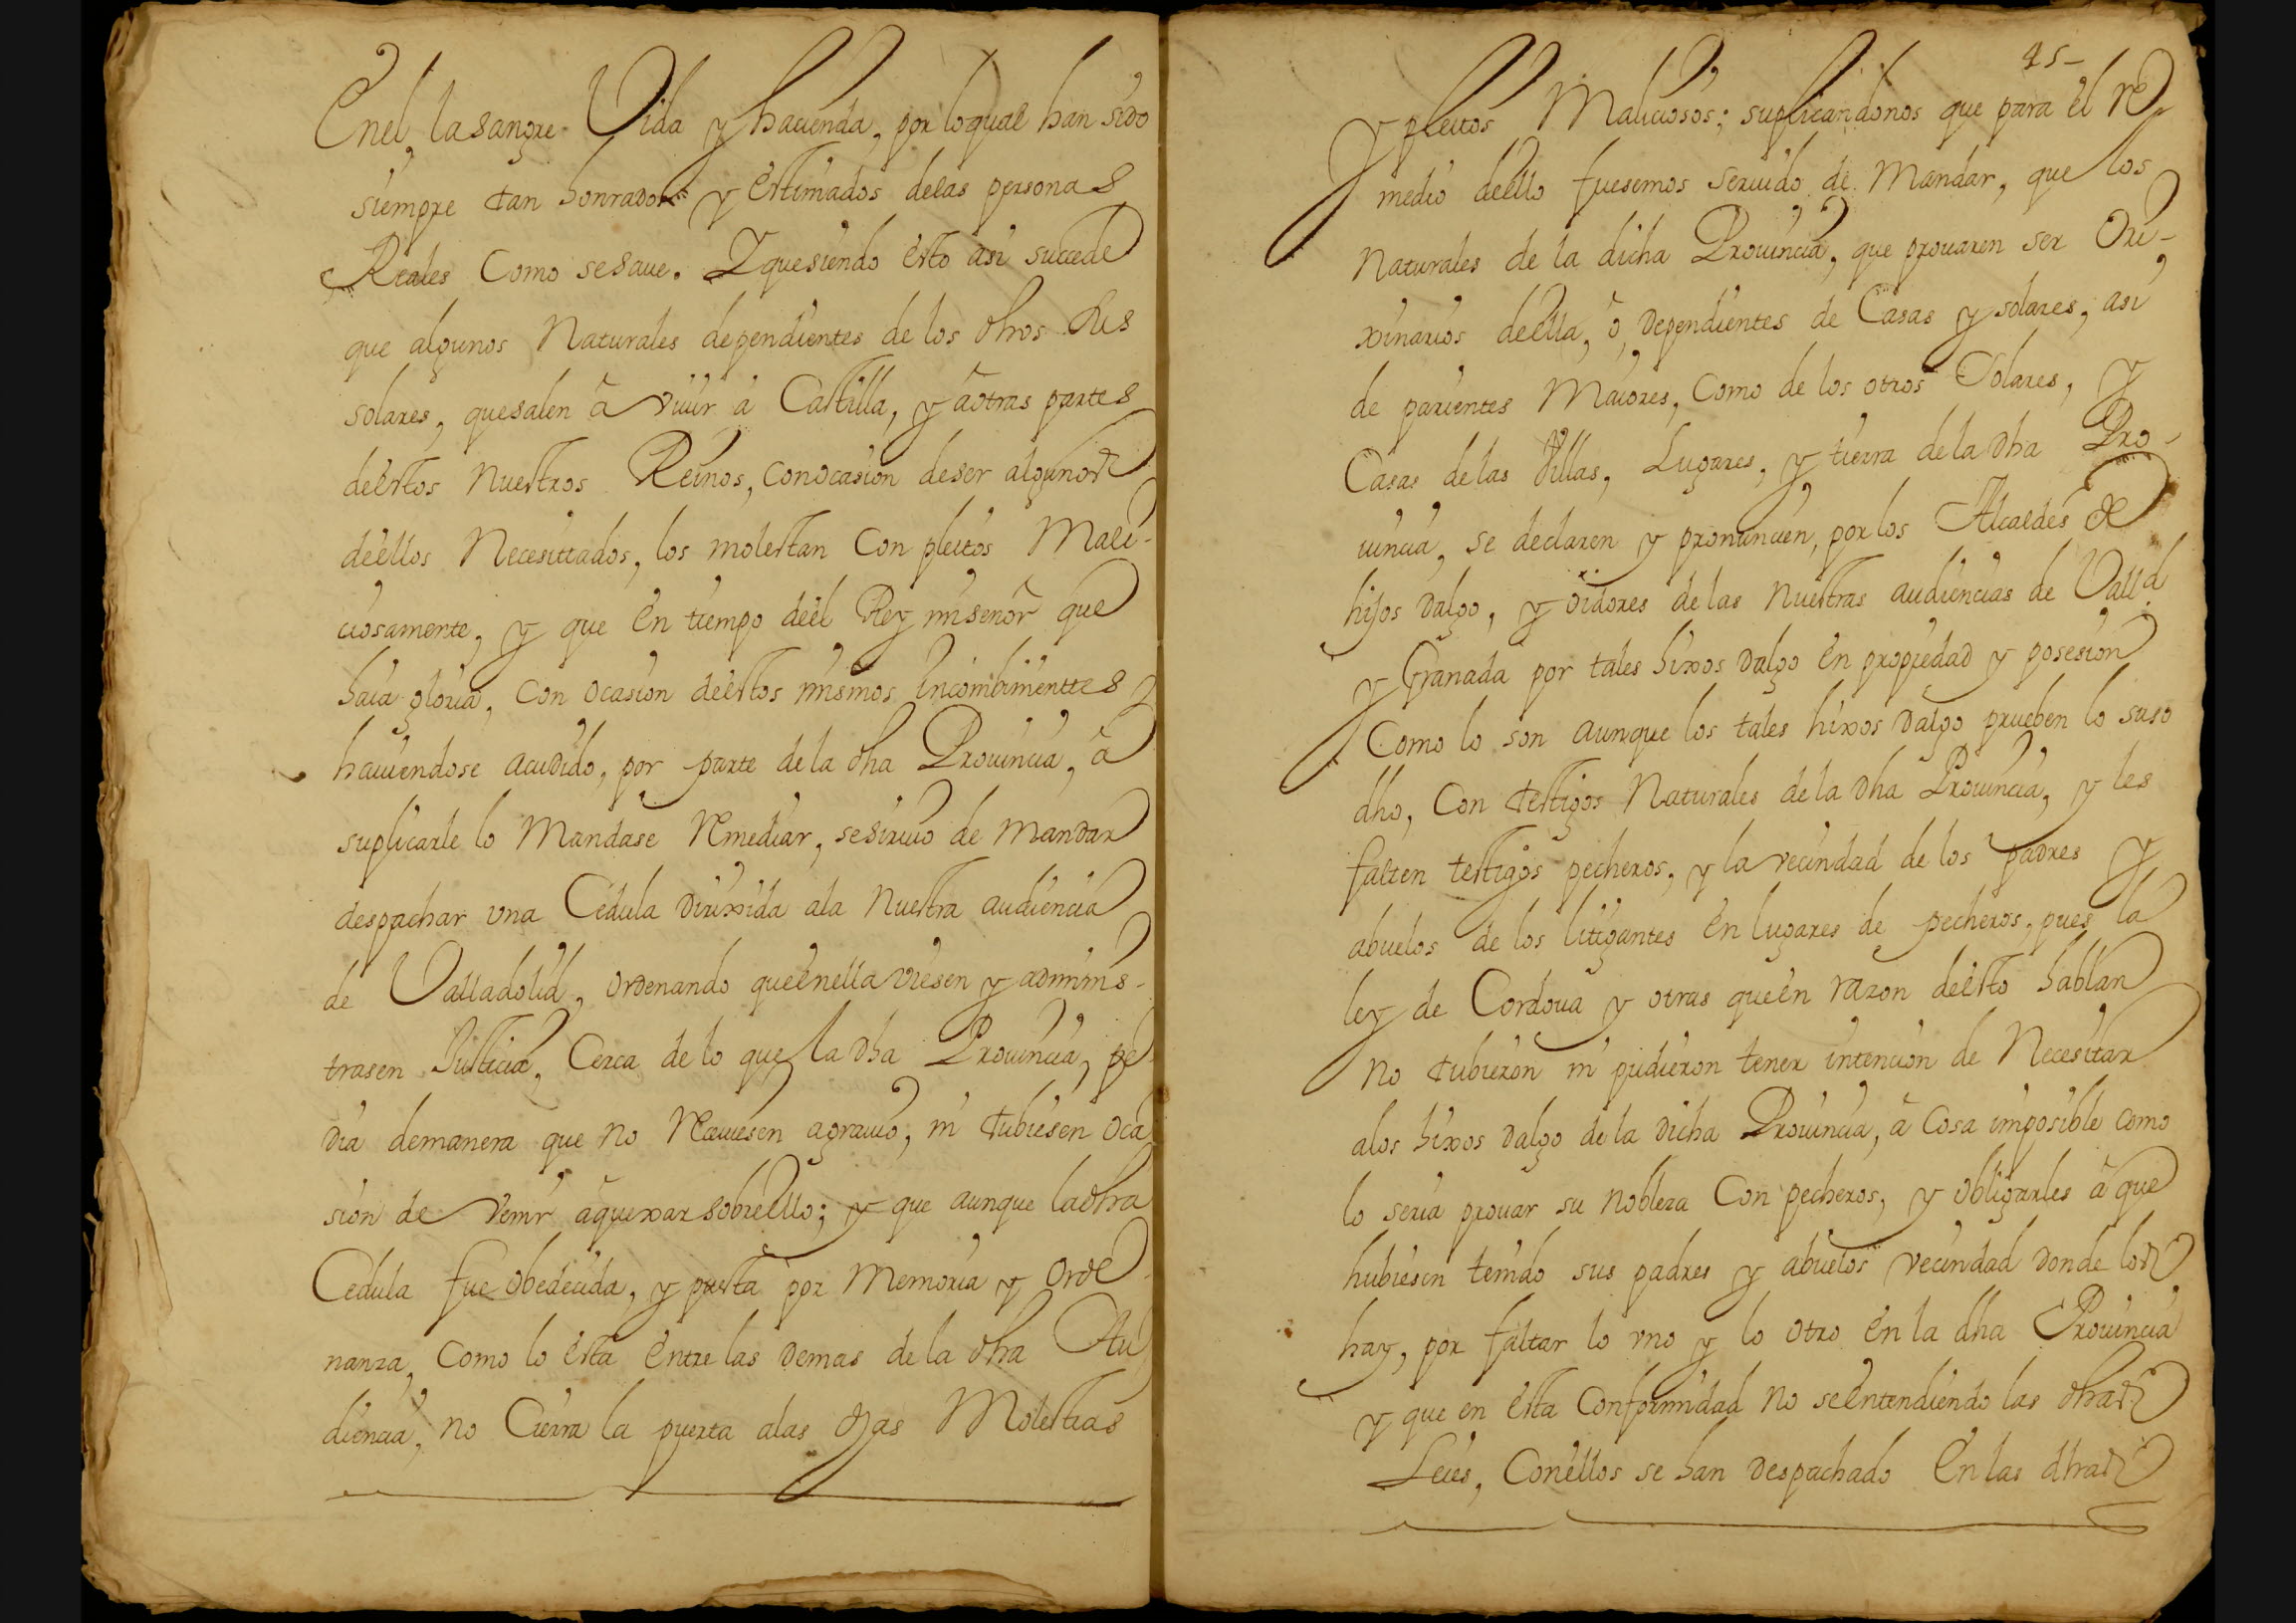 Enel, la sangre Vida y hacienda, por loqual han sido
siempre tan honrados y estimados delas personas
Reales Como sesaue. Y quesiendo esto asi succede
que algunos Naturales dependientes de los dhos sus
solares, quesalen â viuir à Castilla, y âotras partes
deestos Nuestros Reinos, conocasion deser algunos
deellos Necesitados, los molestan Con pleitos Mali-
ciosamente, y que en tiempo deel Rey mi señor que
haia gloria, con ocasion deestos mismos Incombinientes
hauiendose acudido, por parte de la dha Prouincia, â
suplicarle lo Mandase Remediar, sesiruio de mandar
despachar vna Cedula dirixida ala Nuestra audiencia
de Valladolid, ordenando queenella viesen y adminis-
trasen Justicia, Cerca de lo que la dha Prouincia, pe-
dia demanera que no Reciuiesen agrauio, ni tubiesen oca
sion de venir âquexar sobreello; y que aunque la dha
Cedula fue obedecida, y puesta por Memoria y orde-
nanza, Como lo esta entre las demas de la dha Au
diencia, no Cierra la puerta alas dhas Molestias
45-
y pleitos Maliciosos; suplicandonos que para el re-
medio deello fuesemos seruido de Mandar, que los
Naturales de la dicha Prouincia, que prouaren ser Ori-
xinarios deella, ô, dependientes de Casas y solares, asi
de parientes Maiores, Como de los otros Solares, y
Casas de las Villas, Lugares, y tierra de la dha Pro-
uincia, se declaren y pronuncien, por los Alcaldes de
hijos dalgo, y oidores de las Nuestras audiencias de Valld
y Granada por tales hixos dalgo en propiedad y posesion
Como lo son aunque los tales hixos dalgo prueben lo suso
dho, Con testigos Naturales de la dha Prouincia, y les
falten testigos pecheros, y la vecindad de los padres y
abuelos de los litigantes en lugares de pecheros, pues la
ley de Cordoua y otras queen razon deesto hablan
no tubieron ni pudieron tener intencion de Necesitar
alos hixos dalgo de la dicha Prouincia, â cosa imposible como
lo seria prouar su nobleza Con pecheros, y obligarles â que
hubiesen tenido sus padres y abuelos vecindad donde los
hay, por faltar lo vno y lo otro en la dha Prouincia
y que en esta Conformidad no seentendiendo las dhas
Leies, Conellos se han despachado en las dhas